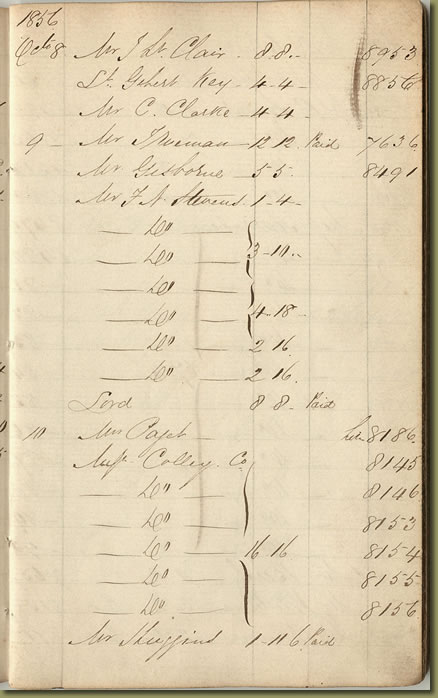 1856
Octo 8 Mr J St. Clair - 8 8 - 8953
St. Gebert Key - 4 - 4 - 8856
Mr C. Clarke - 4 4 -
9 - Mr 12 12 Paid 7636
Mr Gisborne - 5 5 - 8491
Mr F. N. Stevens - 1 - 4 -
— Do —
— Do — 3 - 10 -
— Do —
— Do — 4 - 18 -
— Do — 2 16
— Do — 2 16
Lord 8 8 - Paid
10 Mrs 8186
Miss Colley Co 8145
— Do — 8146
— Do — 8153
— Do — 16 16 8154
— Do — 8155
— Do — 8156
Mr Huggins 1 - 11 6 Paid